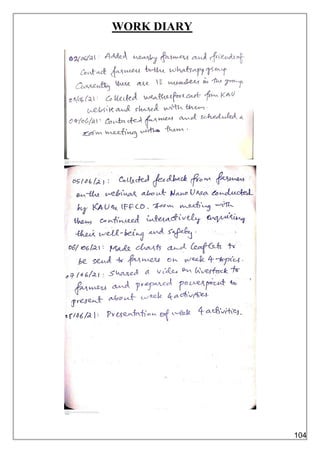 WORK DIARY
02/06/21: Added nearby farmers and friends of
Contact farmers to the whatsapp group
Currently there are 13 members in the group
03/06/21: Collected weather forecast from KAU
website and shared with them.
04/06/21: Contacted farmers and scheduled a
zoom meeting with them.
05/06/21: Collected feedback from farmers
on the webinar about Nano Urea conducted
by KAU & IFFCO. Zoom meeting with
them continued interactively enquiring
their well-being and safety.
06/06/21: Made charts and leaflets to
be send to farmers on week 4 topics.
07/06/21: Shared a video on livestock to
farmers and prepared powerpoint to
present about week 4 activities
08/06/21: Presentation of week 4 activities.
104